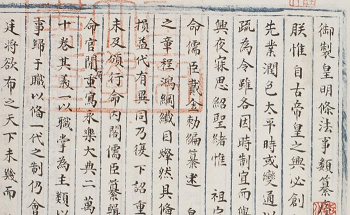 御製皇明條法事類纂
朕惟自古帝皇之興必創
先業潤色太平時或變通以
疏為今雖各因時制宜而與
興夜寐思紹聖緒惟 祖宗
命儒臣戴金勅編纂逮 皇
之章程鴻綱纖目燦然具備
損益代有異同乃復下詔重
未及頒行命內閣儒臣纂輯
命官開重寫永樂大典二萬
十卷其義以職掌為主類以
事歸于職以俻一代之制仍會
廷将欲布之天下未幾而